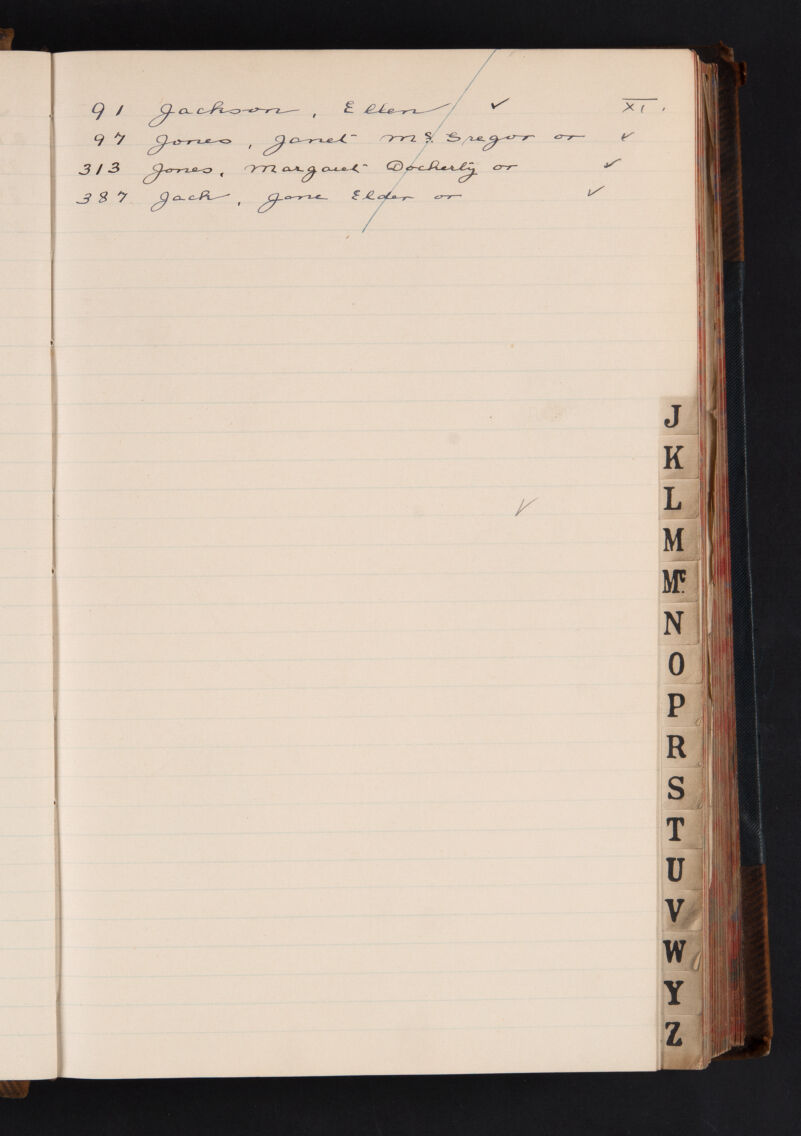 91 Jackson, Ellen ✓ XI.
97 Jones, Janet McGregor or ✓
313 Jones, Margaret Docherty or ✓
387 Jack, Jane Elder or ✓
✓
J
K
L
M
Mc
N
O
P
R
S
T
U
V
W
Y
Z